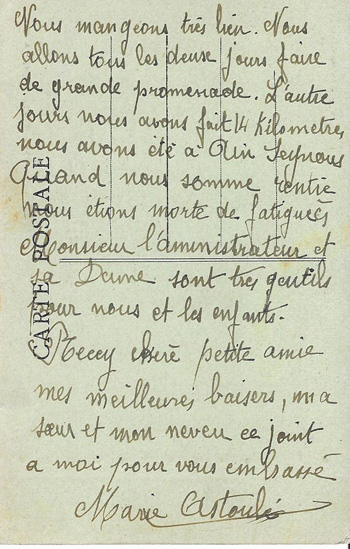 Nous mangeons très bien. Nous
allons tous les deux jours faire
de grande promenade. L'autre
jours nous avons fait 14 Kilometres
nous avons été a Ain Seynous
Quand nous somme rentre
nous étions morte de fatiguées
Monsieur l'aministrateur et
sa Dame sont très gentils
pour nous et les enfants.
Recey chere petite amie
mes meilleures baisers, ma
sœur et mon neveu ce joint
a moi pour vous embrassé
Marie
CARTE POSTALE